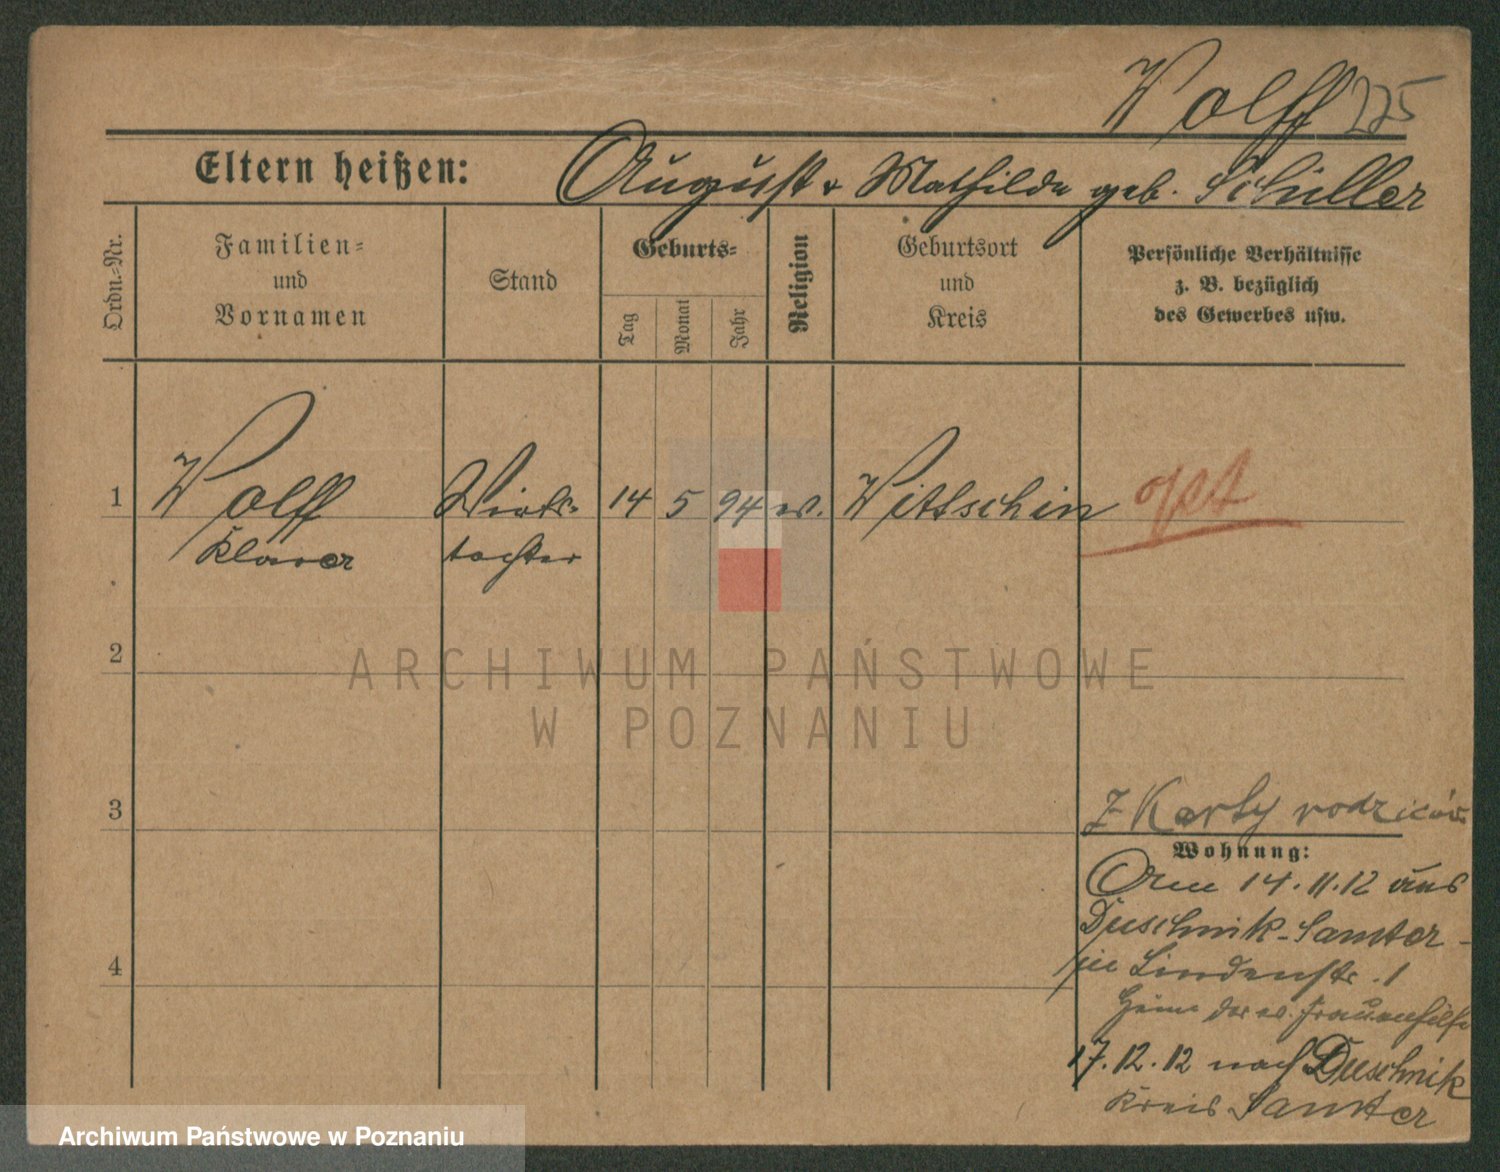 Wolff 225
Eltern heißen: August & Mathilde geb. Schüller
Ordn.-Nr.
Familien-
und
Vornamen
Stand
Geburts-
Tag
Monat
Jahr
Religion
Geburtsort
und
Kreis
Persönliche Verhältnisse
z. B. bezüglich
des Gewerbes usw.
1 Wolff Wirts- 14 5 94 ev. Wittschin
Klara tochter
2
3
4
z Karty rodziców
Wohnung:
14.11.12 aus
Duschnik-Samter
in Lindenstr. 1
Heim der ev. Frauenhilfe
17.12.12 nach Duschnik
Kreis Samter
ARCHIWUM PAŃSTWOWE
W POZNANIU
Archiwum Państwowe w Poznaniu